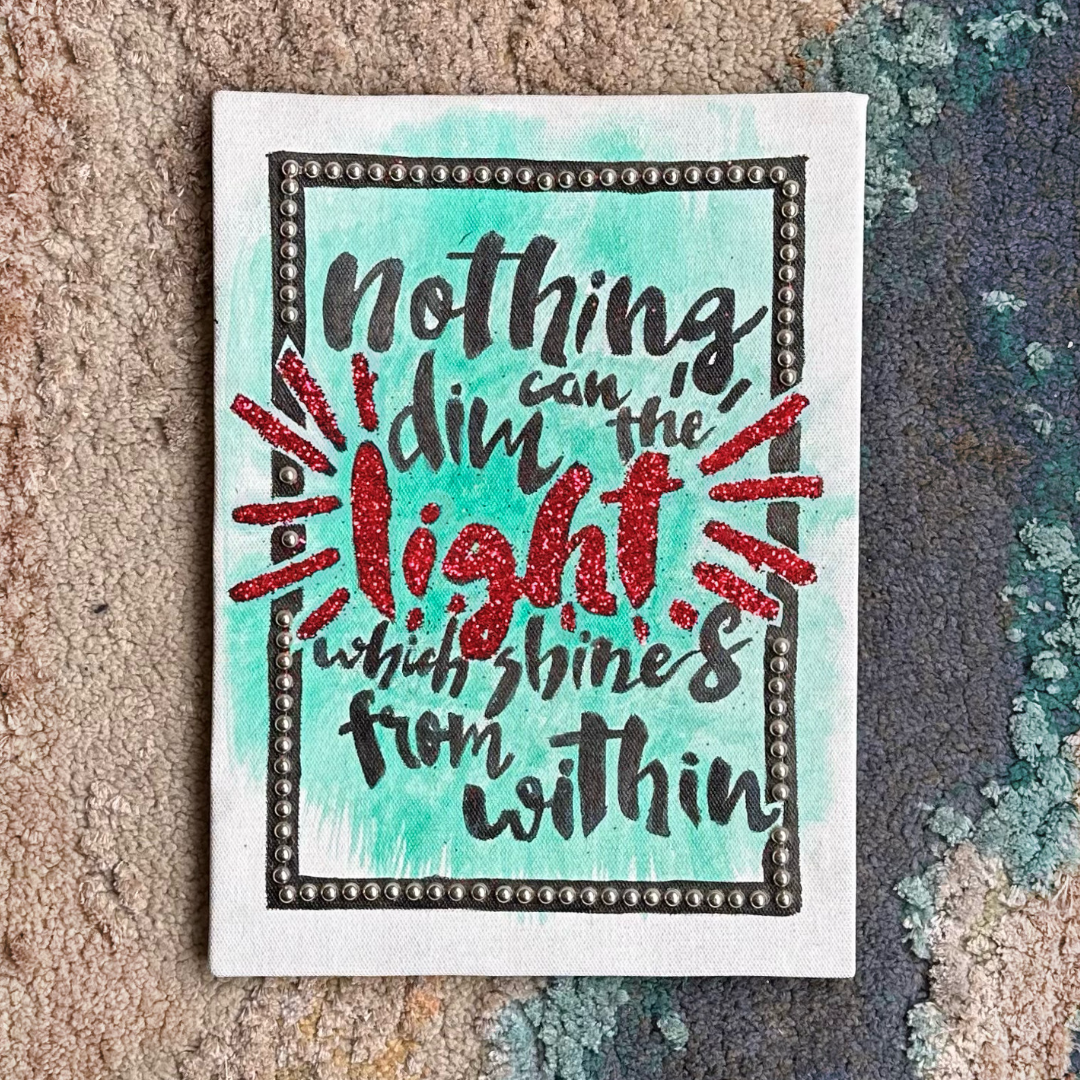 nothing
can
dim the
light
which shines
from
within